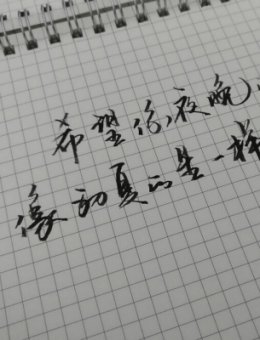 希望你夜晚
像初夏的星一样